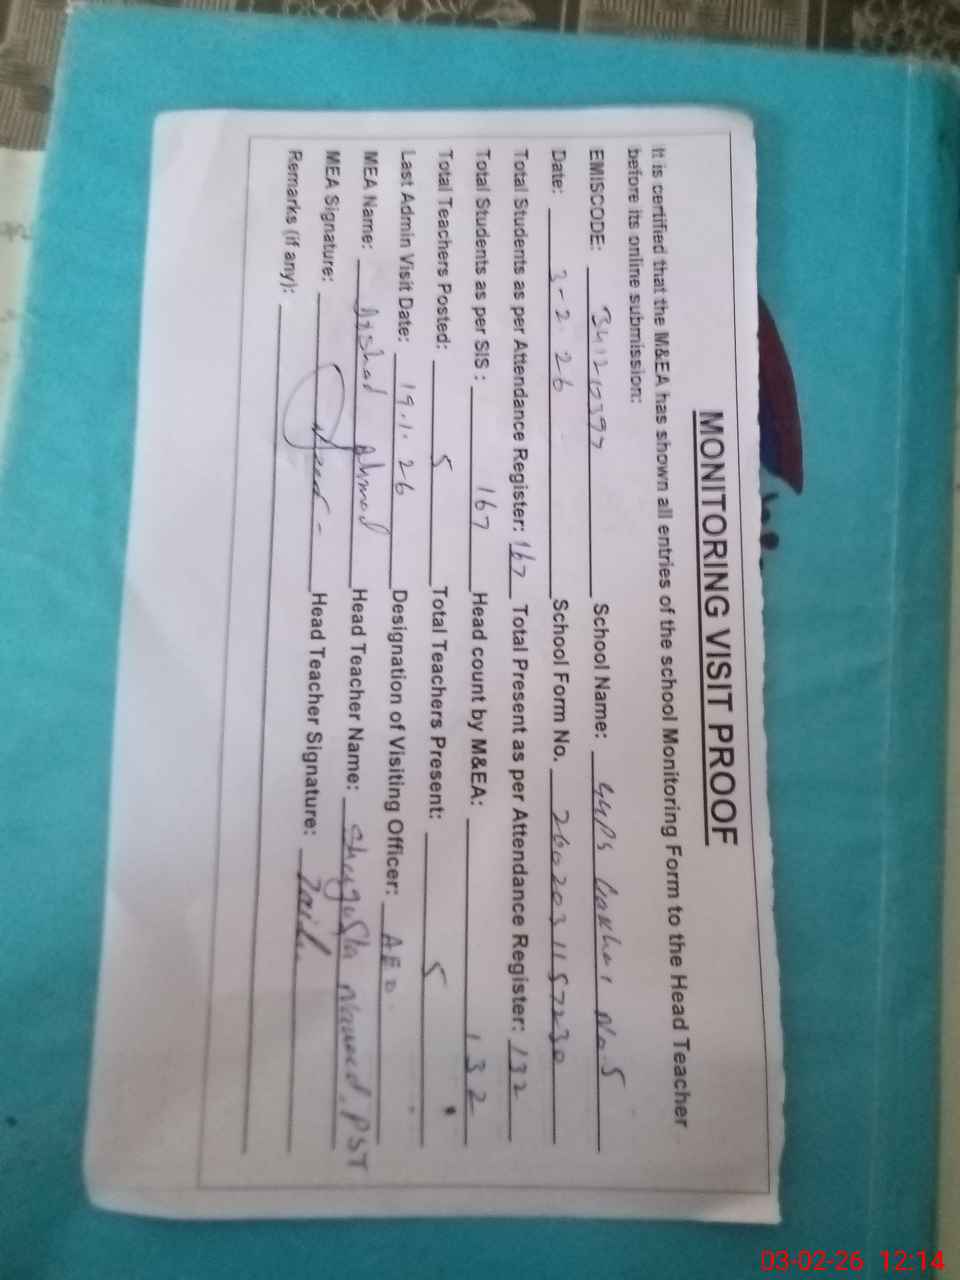 MONITORING VISIT PROOF
It is certified that the M&EA has shown all entries of the school Monitoring Form to the Head Teacher
before its online submission:
EMISCODE: 34121039 School Name: GGPS No. 5
Date: 3-2-26 School Form No. 2602031157230
Total Students as per Attendance Register: 167 Total Present as per Attendance Register: 132
Total Students as per SIS : 167 Head count by M&EA: 132
Total Teachers Posted: 5 Total Teachers Present: 5
Last Admin Visit Date: 19.1.26 Designation of Visiting Officer: AEO.
MEA Name: Arshad Ahmad Head Teacher Name: Shagufta Naveed. PST
MEA Signature: Head Teacher Signature:
Remarks (if any):
03-02-26 12:14